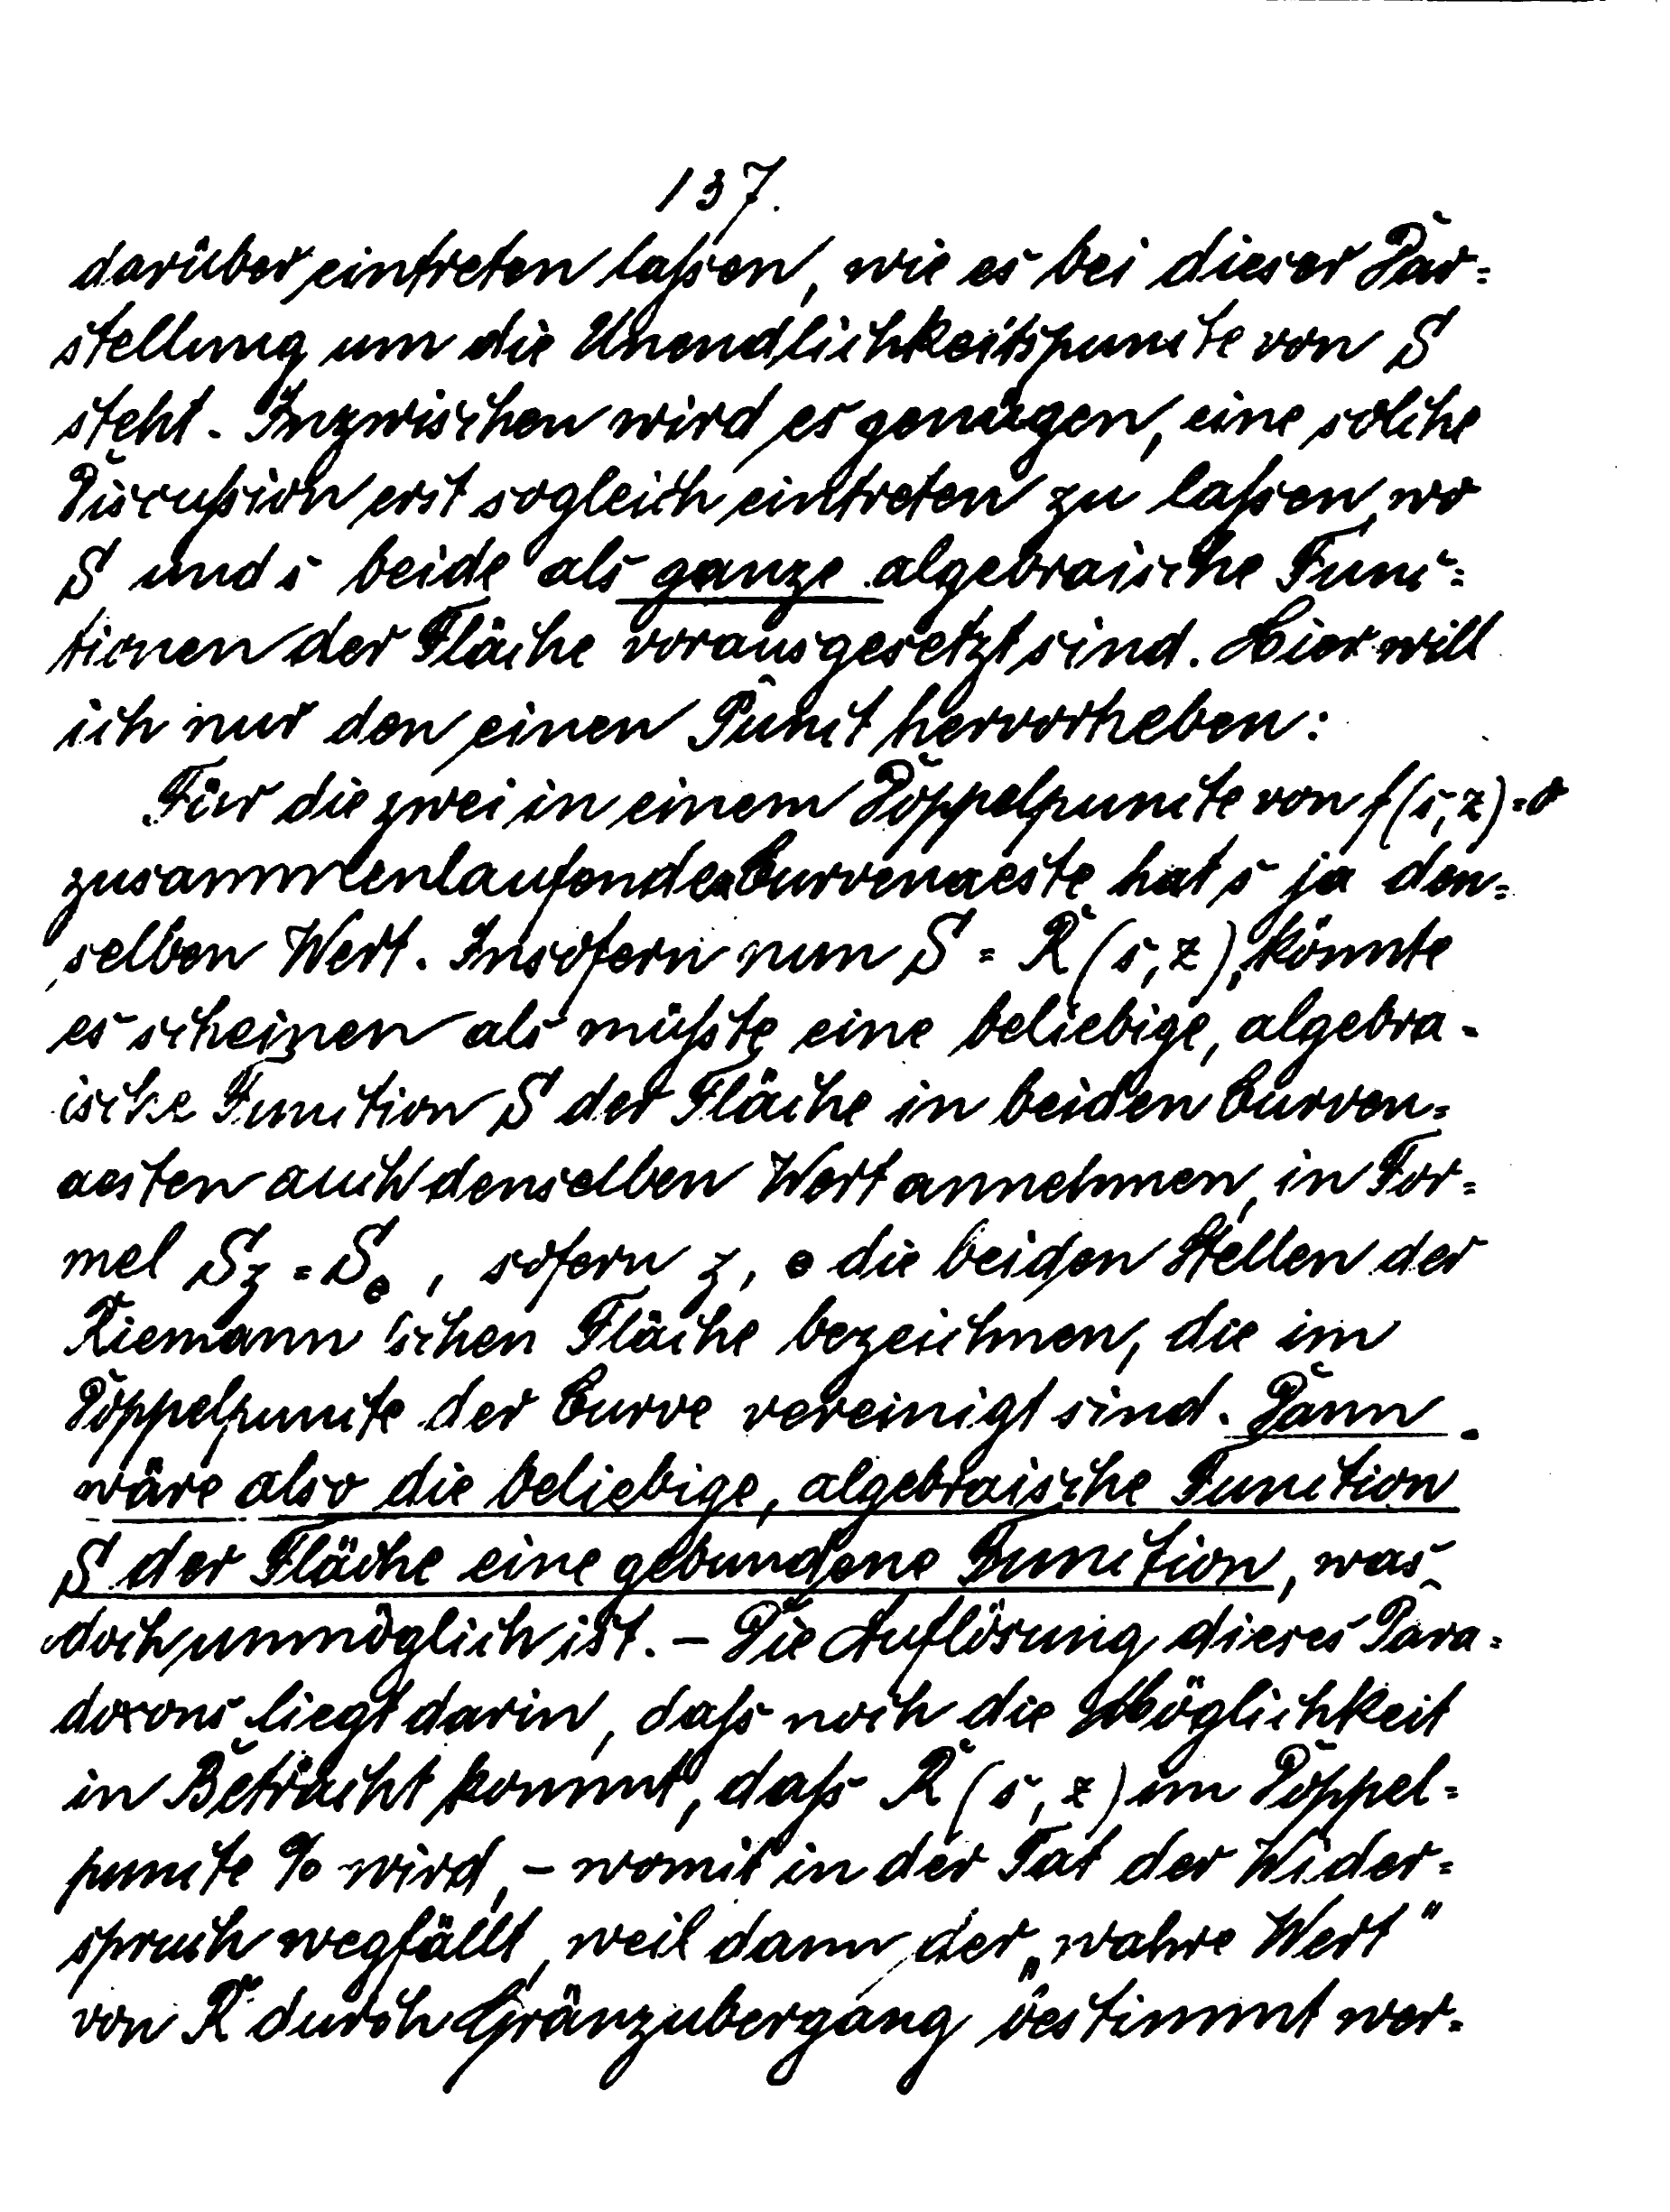 137.
darüber eintreten laßen, wie es bei dieser Dar=
stellung um die Unendlichkeitspuncte von S
steht. Inzwischen wird es genügen, eine solche
Discußion erst sogleich eintreten zu laßen, wo
S und s beide als ganze algebraische Func=
tionen der Fläche vorausgesetzt sind. Hier will
ich nur den einen Punct hervorheben:
Für die zwei in einem Doppelpuncte von f(s,z)=0
zusammenlaufenden Curvenaeste hat s ja den=
selben Wert. Insofern nun S = R(s,z), könnte
es scheinen als müßte eine beliebige, algebra-
ische Function S der Fläche in beiden Curven=
aesten auch denselben Wert annehmen, in For=
mel Sz = Se, sofern z, e die beiden Stellen der
Riemann'schen Fläche bezeichnen, die im
Doppelpuncte der Curve vereinigt sind. Dann
wäre also die beliebige, algebraische Function
S der Fläche eine gebundene Function, was
doch unmöglich ist. – Die Auflösung dieses Para=
doxons liegt darin, daß noch die Möglichkeit
in Betracht kommt, daß R(s,z) im Doppel=
puncte % wird, – womit in der Tat der Wider=
spruch wegfällt, weil dann der „wahre Wert"
von R durch Gränzubergang bestimmt wer=